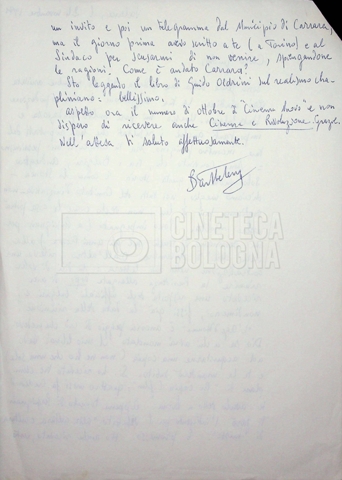 un invito e poi un telegramma dal Municipio di Carrara,
ma il giorno prima avevo scritto a te (a Torino) e al
Sindaco per scusarmi di non venire, spiegandone
le ragioni. Come è andato Carrara?
Sto leggendo il libro di Guido Oldrini sul realismo cha-
pliniano: bellissimo.
Aspetto ora il numero di ottobre di "Cinema Nuovo" e non
dispero di ricevere anche Cinema e Rivoluzione. Grazie.
Nell'attesa ti saluto affettuosamente.
CINETECA
BOLOGNA